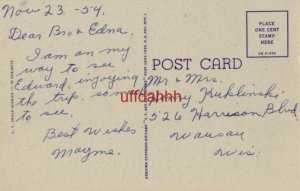 Nov 23 - 54,
Dear Bro & Edna.
I am on my
way to see
Edward, injoying
the trip. so much
to see.
Best Wishes
Mayme.
POST CARD
PLACE
ONE CENT
STAMP
HERE
Mr & Mrs.
Kuklinski
526 Harrison Blvd
Wausau
Wis.
uffdahhh